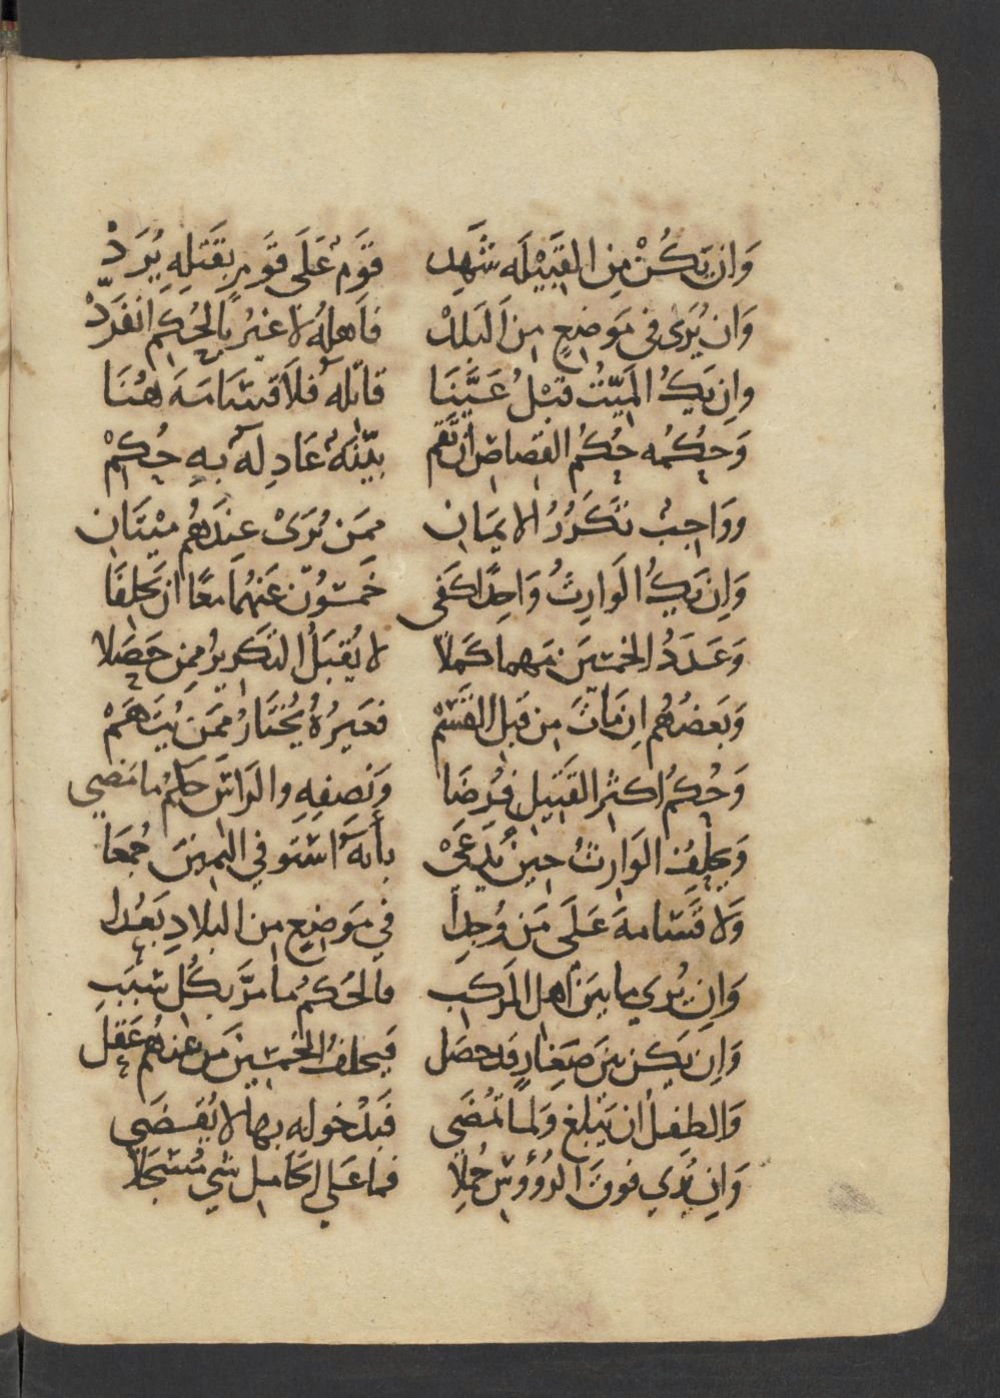 وَان تكُنْ مِن القَبِيْلَه شَهِد قَوَم عَلَى قَوَمٍ بِقَتلِهِ يُرَدْ
وَان يُرَى في مَوَضِعٍ مِن اَلبَلدْ فاَهلهُ لا غيرُ بِالحُكِم انفَرَدّْ
وانِ يَكُ المَيّتُ قَبْلُ عَيَّنَا قاتله فلاَ قسَامَةَ هُنَا
وَحُكمُه حُكمُ القصاص اَن تَّقم بيّنَهُ عَادِله بِهِ حُكِمْ
ووَاجِبُ تكَرُرُ الايمَان ممَن يُرَىْ عندَهُم مَيْتَان
وَاِن يَكُ الوَارِثُ وَاحِدًا كَفَى خَمسُوْن عَنهُمَا معًا ان يَحلِفَا
وَعَدَدُ الخمسَين مَهما كَملاَ لا يُقبَلُ التكَرِيرُ ممِن حَصَلا
وَبَعضُهُم اِن مَاتَ مِن قَبلِ القَسَمْ فغَيرُهُ يُختَارُ ممَن يُتَهَمْ
وَحُكمُ اكثِر القَتِيلِ فُرِضَا وَنصفِهِ والرَاسَ حكمُ ما مَضي
وَيحلِفُ الوَارِثُ حِينَ يَدعَىْ بأنهَ استَوفي اليَمِينَ جُمعَا
وَلا قسَامهَ عَلَى مَن وُجِدَاً في مَوَضِعٍ مِن البلادِ بَعُدا
وَاِن يُري ما بَينَ اهلِ المَركبِ فالحُكمُ ما مَرَّ بكُلِ سَبَبِ
وَاِن يَكن بَينَ صِغَارٍ قد حصَل فيَحلفُ الخمسِينَ مَن عندهُم عَقَل
وَالطفلُ ان يَبْلغ وَلماَ تمُضَي فَبدُخولِه بها لا يُقَضَي
وَاِن يُرَي فوقَ الرُؤوسِ حُمِلاَ فما عَلي الحَامِل شي مُسجَلاَ